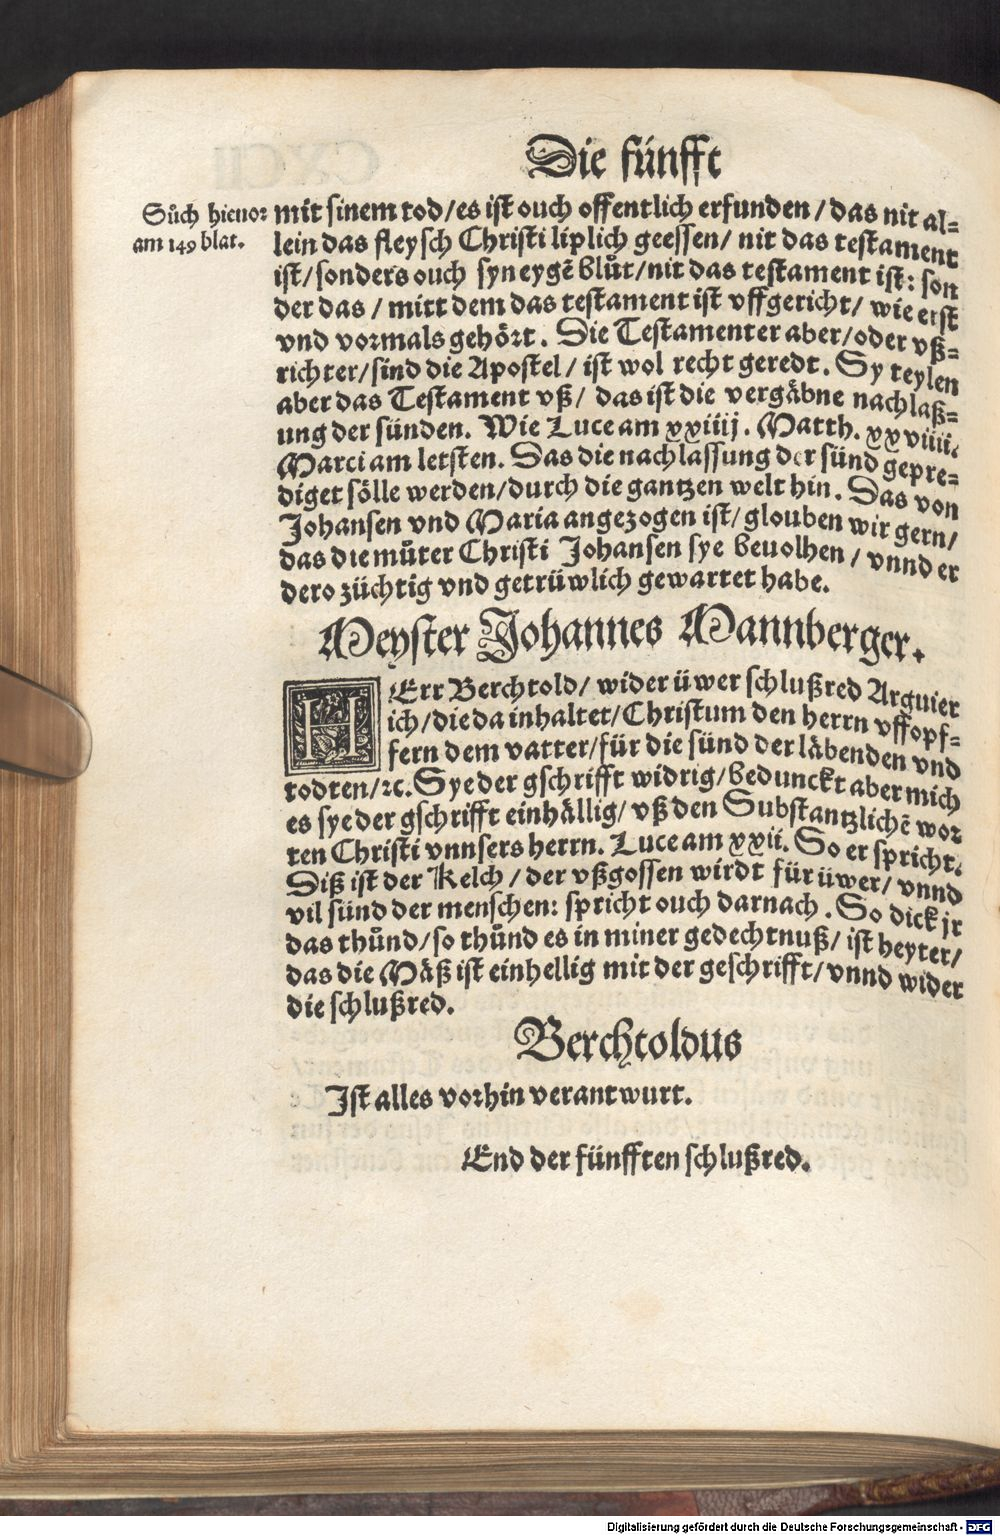 Die fünfft
Sůch hieuor
am 149 blat.
mit sinem tod/es ist ouch offentlich erfunden/das nit al=
lein das fleysch Christi liplich geessen/ nit das testament
ist/sonders ouch syn eygē blůt/nit das testament ist: son
der das/ mitt dem das testament ist vffgericht/ wie erst
vnd vormals gehört. Die Testamenter aber/oder vß=
richter/sind die Apostel/ ist wol recht geredt. Sy teylen
aber das Testament vß/ das ist die vergäbne nachlaß=
ung der sünden. Wie Luce am xxiiij. Matth. xxviiii.
Marci am letsten. Das die nachlassung der sünd gepre=
diget sölle werden/durch die gantzen welt hin. Das von
Johansen vnd Maria angezogen ist/ glouben wir gern/
das die můter Christi Johansen sye beuolhen/ vnnd er
dero züchtig vnd getrüwlich gewartet habe.
Meyster Johannes Mannberger.
HErr Berchtold/ wider üwer schlußred Arguier
ich/die da inhaltet/Christum den herrn vffopf=
fern dem vatter/für die sünd der läbenden vnd
todten/ꝛc. Sye der gschrifft widrig/bedunckt aber mich
es sye der gschrifft einhällig/ vß den Substantzlichē wor
ten Christi vnnsers herrn. Luce am xxii. So er spricht.
Diß ist der Kelch/der vßgossen wirdt für üwer/ vnnd
vil sünd der menschen: spricht ouch darnach. So dick jr
das thůnd/so thůnd es in miner gedechtnuß/ ist heyter/
das die Mäß ist einhellig mit der geschrifft/vnnd wider
die schlußred.
Berchtoldus
Ist alles vorhin verantwurt.
End der fünfften schlußred.
Digitalisierung gefördert durch die Deutsche Forschungsgemeinschaft - DFG